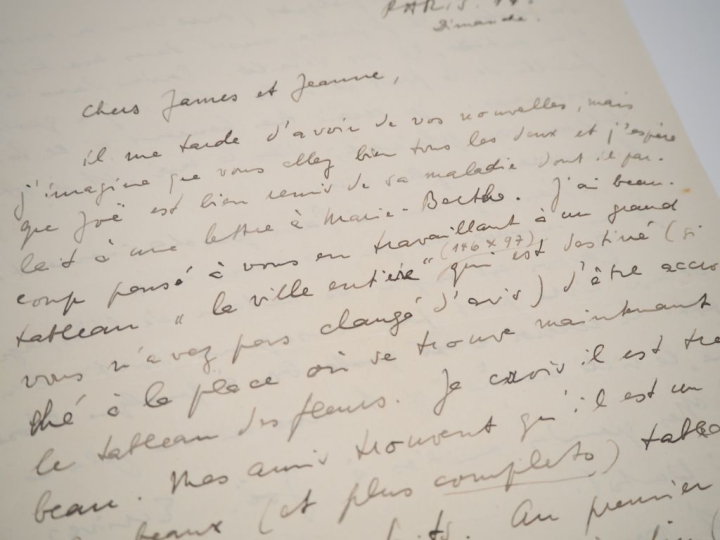 PARIS.
Dimanche.
Chers James et Jeanne,
il me tarde d'avoir de vos nouvelles, mais
j'imagine que vous allez bien tous les deux et j'espère
que Joë est bien remis de sa maladie dont il par-
lait à une lettre à Marie-Berthe. J'ai beau-
coup pensé à vous en travaillant à un grand
tableau "la ville entière" (146 x 97) qui est destiné (si
vous n'avez pas changé d'avis) d'être accro
ché à la place où se trouve maintenant
le tableau des fleurs. Je crois il est tre
beau. Mes amis trouvent qu'il est un
beaux (et plus complets) table
Au premier